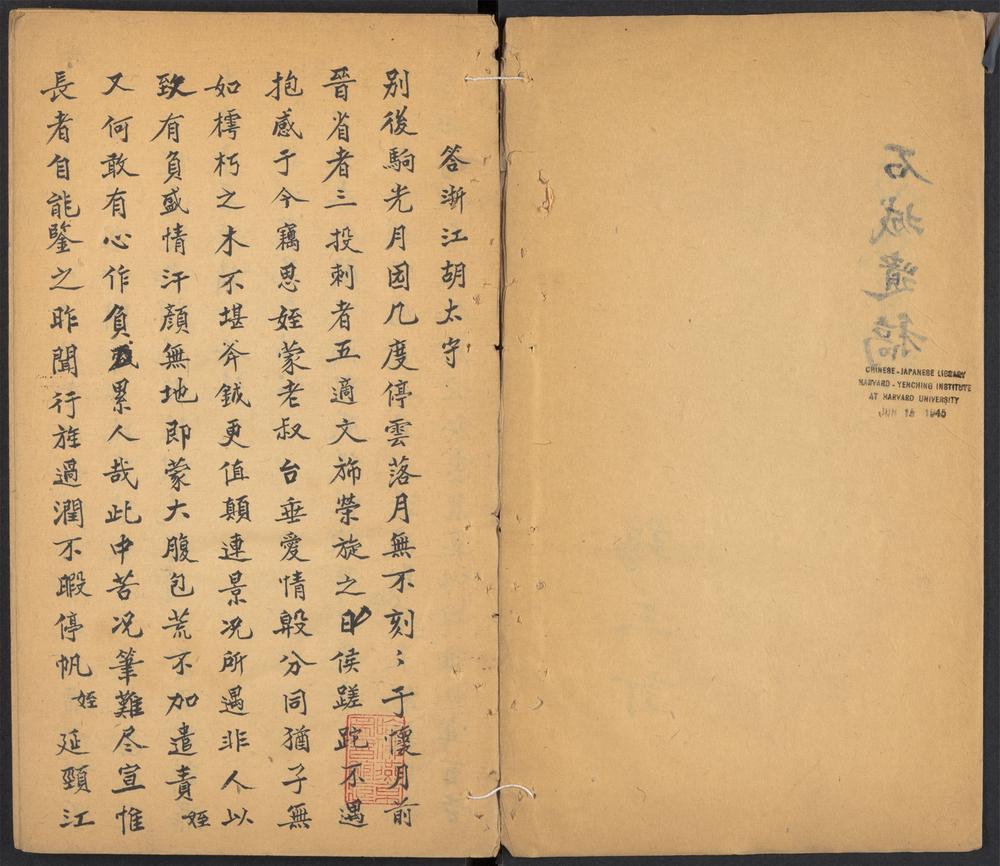 石城遺稿
CHINESE-JAPANESE LIBRARY
HARVARD-YENCHING INSTITUTE
AT HARVARD UNIVERSITY
JUN 15 1945
答浙江胡太守
別後駒光月因几度停雲落月無不刻〻于懷月前
晉省者三投刺者五適文斾榮旋之日侯蹉跎不遇
抱感于今竊思姪蒙老叔台垂愛情殷分同猶子無
如樗朽之木不堪斧鉞更值顛連景况所遇非人以
致有負盛情汗顏無地即蒙大腹包荒不加遣責姪
又何敢有心作負累人哉此中苦况筆難尽宣惟
長者自能鑒之昨聞行旌過潤不暇停帆姪延頸江